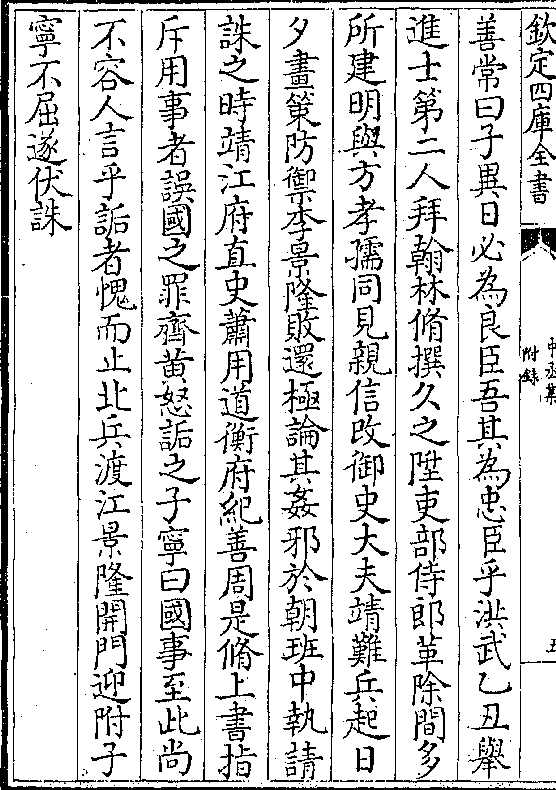 欽定四庫全書
中丞集
附錄
五
善常曰子異日必為良臣吾其為忠臣乎洪武乙丑舉
進士第二人拜翰林脩撰久之陞吏部侍郎革除間多
所建明與方孝孺同見親信改御史大夫靖難兵起日
夕畫策防禦李景隆敗還極論其姦邪於朝班中執請
誅之時靖江府直史蕭用道衡府紀善周是脩上書指
斥用事者誤國之罪齊黄怒詬之子寧曰國事至此尚
不容人言乎詬者愧而止北兵渡江景隆開門迎附子
寧不屈遂伏誅